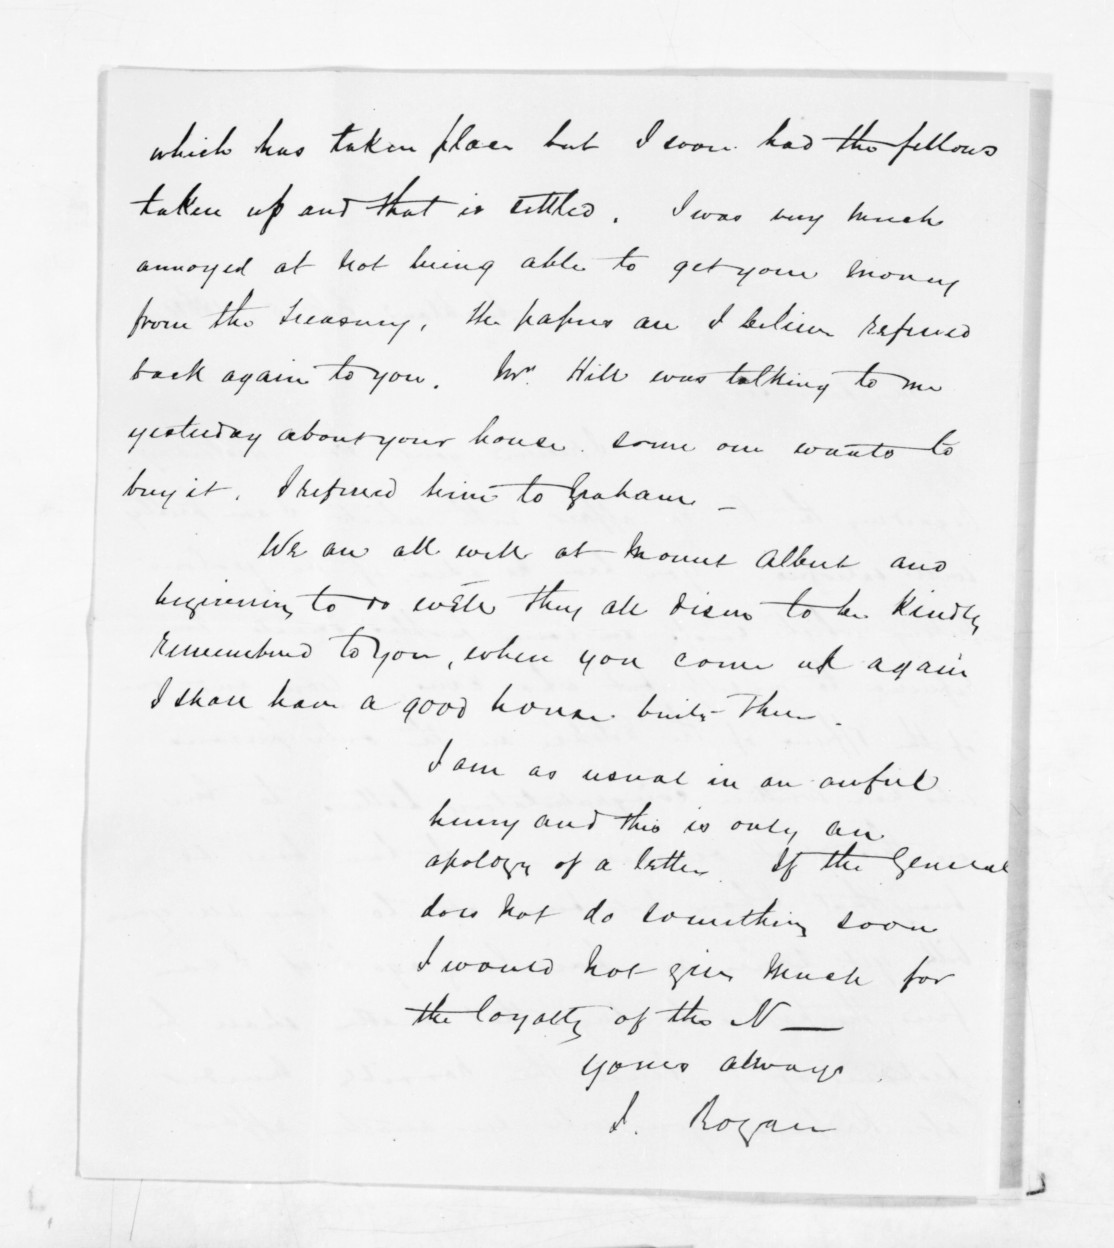 which has taken place but I soon had the fellows
taken up and that is settled. I was very much
annoyed at not being able to get your money
from the Treasury, the papers are I believe referred
back again to you. Mr. Hill was talking to me
yesterday about your house some one wants to
buy it. I referred him to Graham –
We are all well at Mount Albert and
beginning to do well they all desire to be kindly
remembered to you, when you come up again
I shall have a good house built there.
I am as usual in an awful
hurry and this is only an
apology of a letter. If the General
does not do something soon
I would not give much for
the loyalty of the N —
yours always
J. Rogan